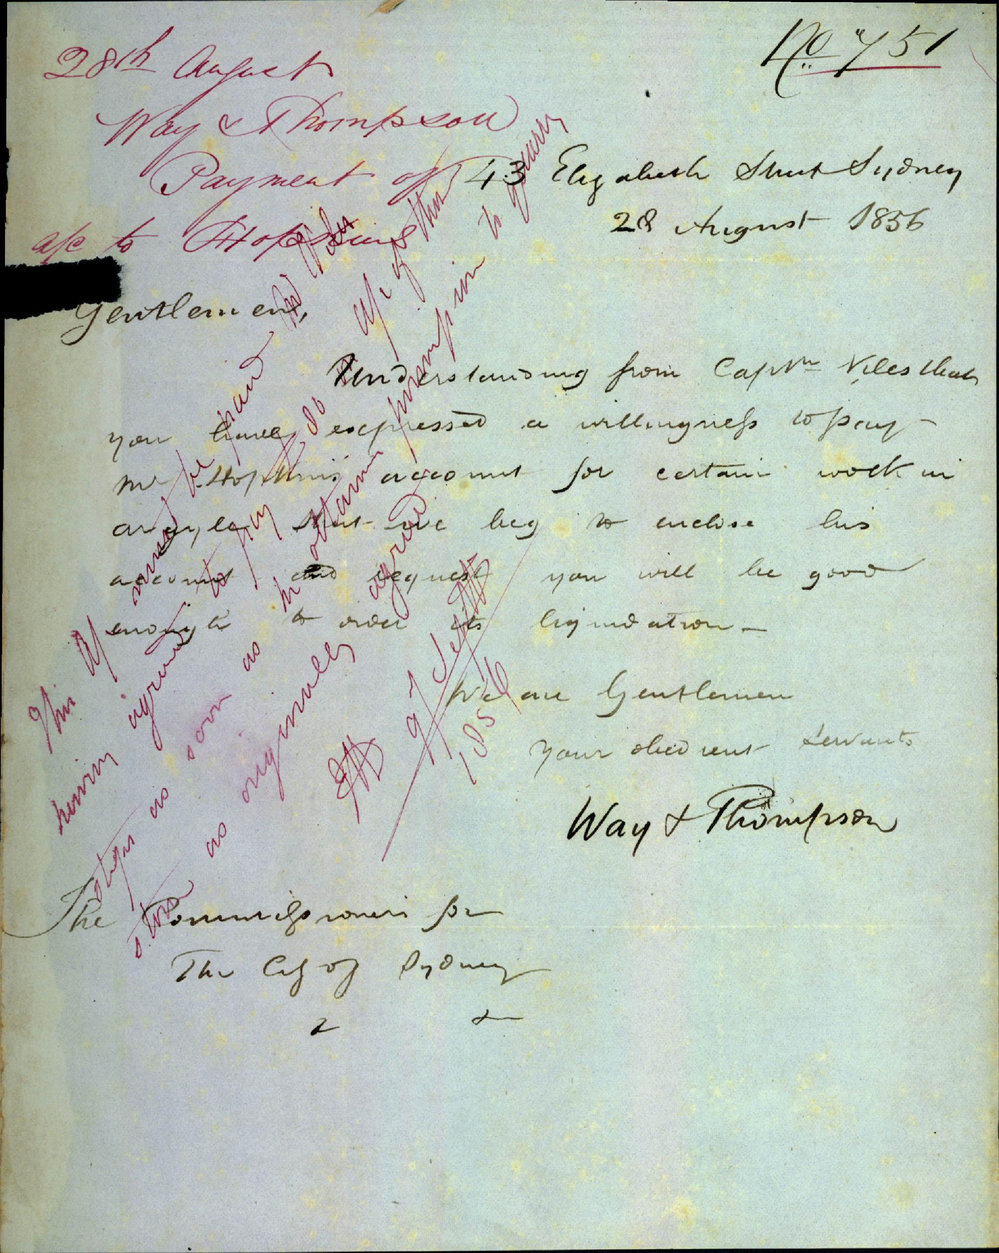 No 751
28th August
Way & Thompson
Payment of
a/c to Hopkins
43 Elizabeth Street Sydney
28 August 1856
Gentlemen,
Understanding from Captn Niles that
you have expressed a willingness to pay
Mr Hopkins' account for certain work in
Argyle Street we beg to enclose his
account and request you will be good
enough to order its liquidation_
We are Gentlemen
Your obedient Servants
Way & Thompson
The Commissioners for
The City of Sydney
This a/c may be paid
having agreed to pay a/c of this
as soon as he obtains permission to quarry
stone as originally agreed
9/ Septr
1856